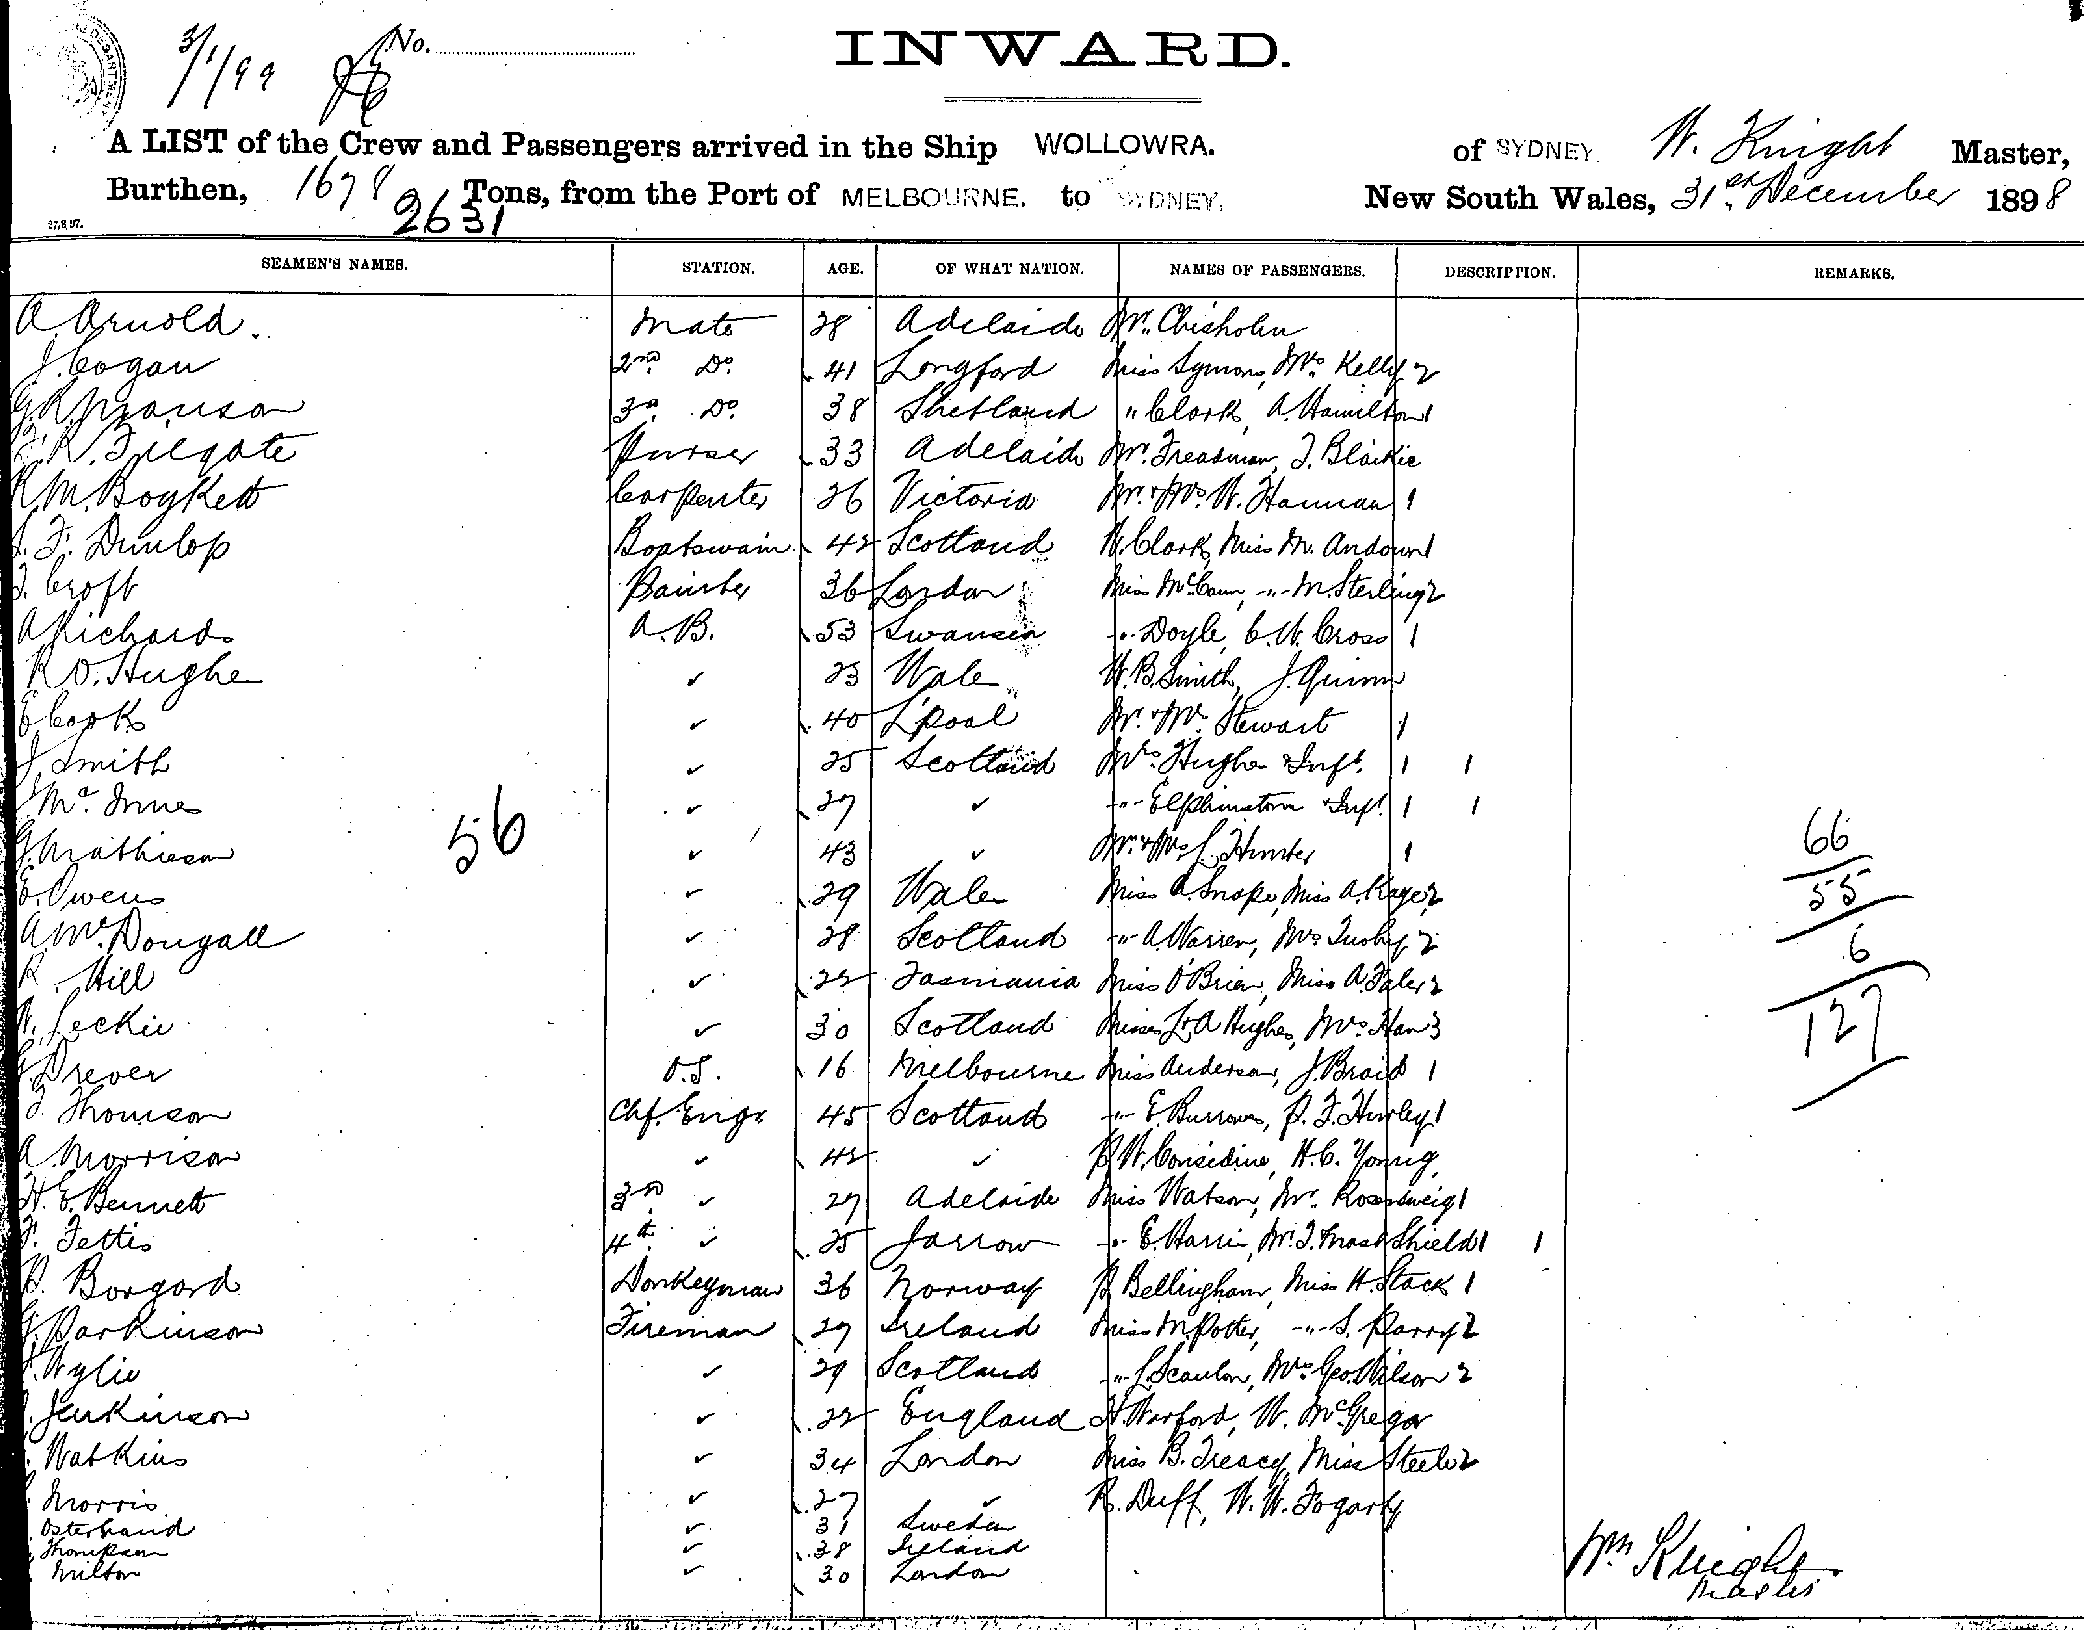 3/1/99 No.
INWARD.
A LIST of the Crew and Passengers arrived in the Ship WOLLOWRA. of SYDNEY. W. Knight Master,
Burthen, 1678 Tons, from the Port of MELBOURNE. to SYDNEY. New South Wales, 31st December 1898
2631
27.8.97.
SEAMEN'S NAMES. STATION. AGE. OF WHAT NATION. NAMES OF PASSENGERS. DESCRIPTION. REMARKS.
A. Arnold. Mate 28 Adelaide Mr. Chisholm
J. Cogan 2nd Do. 41 Longford Miss Symons, Mrs Kelly 2
Manson 3rd Do. 38 Shetland " Clark, A. Hamilton 1
R. Filgate Purser 33 Adelaide Mr. Treadman, J. Blaikie
R. M. Boykett Carpenter 26 Victoria Mr. & Mrs. W. Hannan 1
F. Dunlop Boatswain 42 Scotland W. Clark, Miss M. Andown 1
Croft Painter 36 London Miss McCann, -"- M. Sterling 2
A Richards A.B. 53 Swansea -"- Doyle, C. W. Cross 1
R O. Hughe ✓ 23 Wale W. B. Smith, J. Quinn
E Cook ✓ 40 L'pool Mr. & Mrs. Stewart 1
J. Smith ✓ 25 Scotland Mrs. Hughes & Inft. 1 1
Mc. Innes ✓ 27 ✓ -"- Elphinstone & Inft. 1 1
G. Mathieson ✓ 43 ✓ Mr. & Mrs L. Hunter 1
56
E. Owens ✓ 29 Wales Miss A. Snape, Miss A. Kaye 2
A. Mc. Dougall ✓ 28 Scotland -"- A. Warren, Mrs 2
R. Hill ✓ 22 Tasmania Miss O'Brien, Miss A. 2
W. Leckie ✓ 30 Scotland Misses L & A Hughes, Mrs. Han 3
Drever O.S. 16 Melbourne Miss Anderson, J. Braid 1
Thomson Chf. Engr 45 Scotland -"- E. Burrows, P. F. Hurley 1
A Morrison ✓ 42 ✓ W. Considine, H. C. Young
H. E. Bennett 3rd ✓ 27 Adelaide Miss Watson, Mr. Rosensweig 1
F. Fettis 4th ✓ 25 Jarrow -"- E. Harris, Mr. Shield 1 1
Borgard Donkeyman 36 Norway Bellingham, Miss H. Stack 1
Parkinson Fireman 27 Ireland Miss M. Potter, -"- S. Parry 2
Wylie ✓ 29 Scotland -"- L. Scanlon, Mrs Geo. Wilson 2
Jenkinson ✓ 22 England H Warford, W. McGregor
Watkins ✓ 34 London Miss B. Treacy, Miss Steele 2
Morris ✓ 27 ✓ R. Duff, W. W. Fogarty
Osterhand ✓ 31 Sweden
Thompson ✓ 38 Ireland
Milton ✓ 30 London
66
55
6
127
Wm Knight
Master